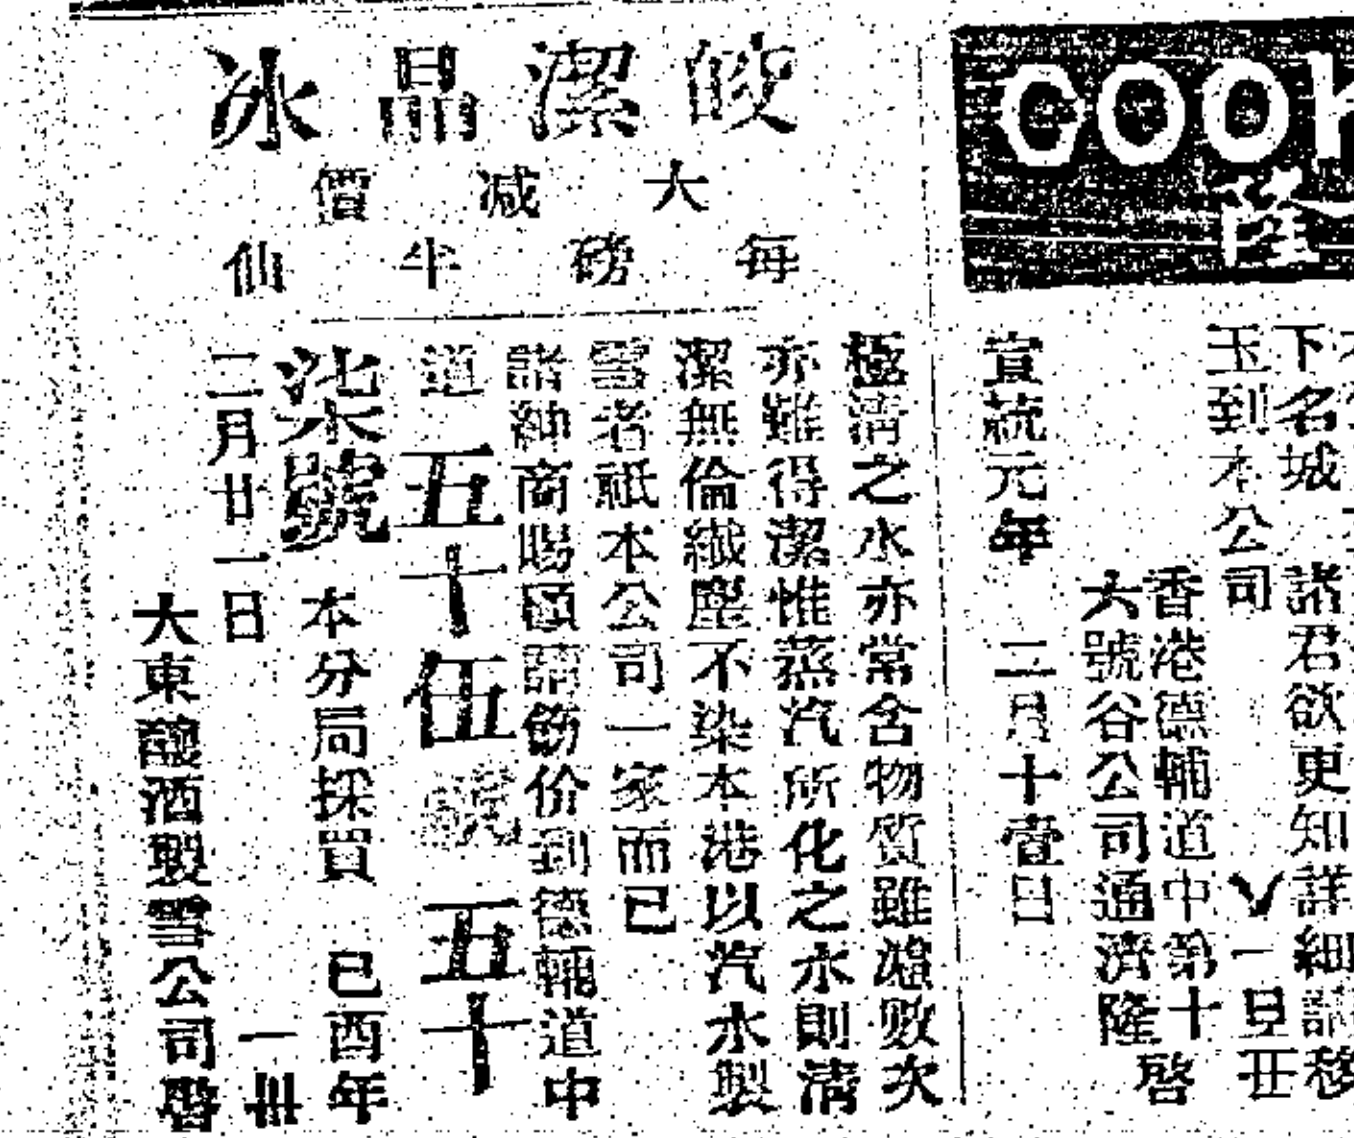 COO
隆
下名城　諸君欲更知詳細請移
玉到本公司
香港德輔道中第十
六號谷公司通濟隆　啓
宣統元年　二月十壹日
皎潔晶冰
大減價
每磅半仙
極清之水亦常含物質雖濾數次
亦難得潔惟蒸汽所化之水則清
潔無倫纖塵不染本港以汽水製
雪者祇本公司一家而已
諸紳商賜顧請飭价到德輔道中
道五十伍號五十
柒號　本分局採買　己酉年
二月廿一日　一卅
大東釀酒製雪公司啓